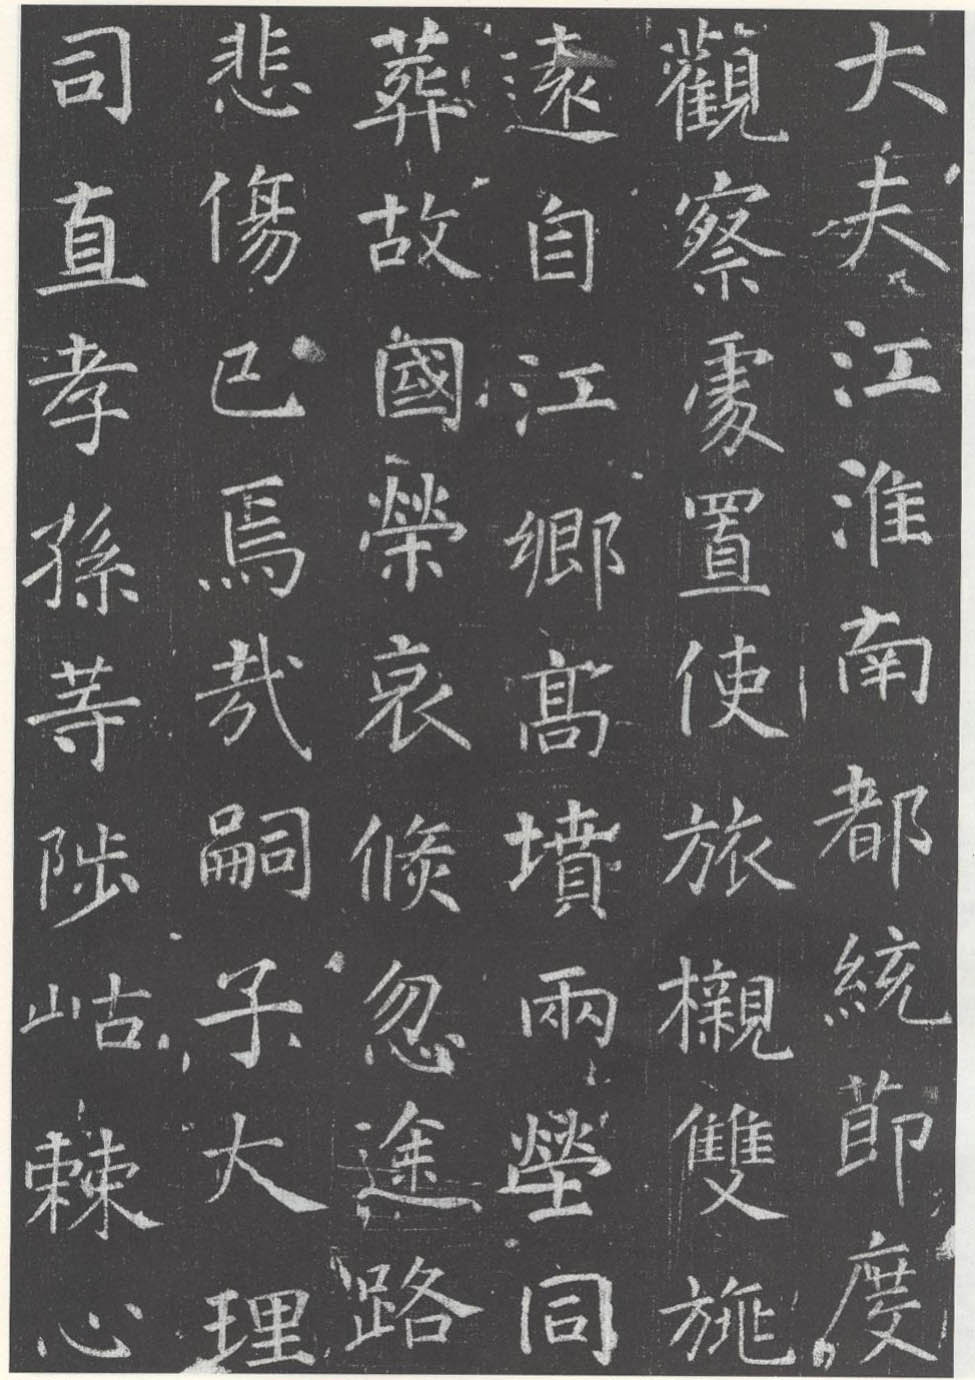 大夫江淮南都統節度
觀察處置使旅櫬雙旐
遠自江鄉高墳兩塋同
葬故國榮哀倏忽途路
悲傷已焉哉嗣子大理
司直孝孫等陟岵棘心